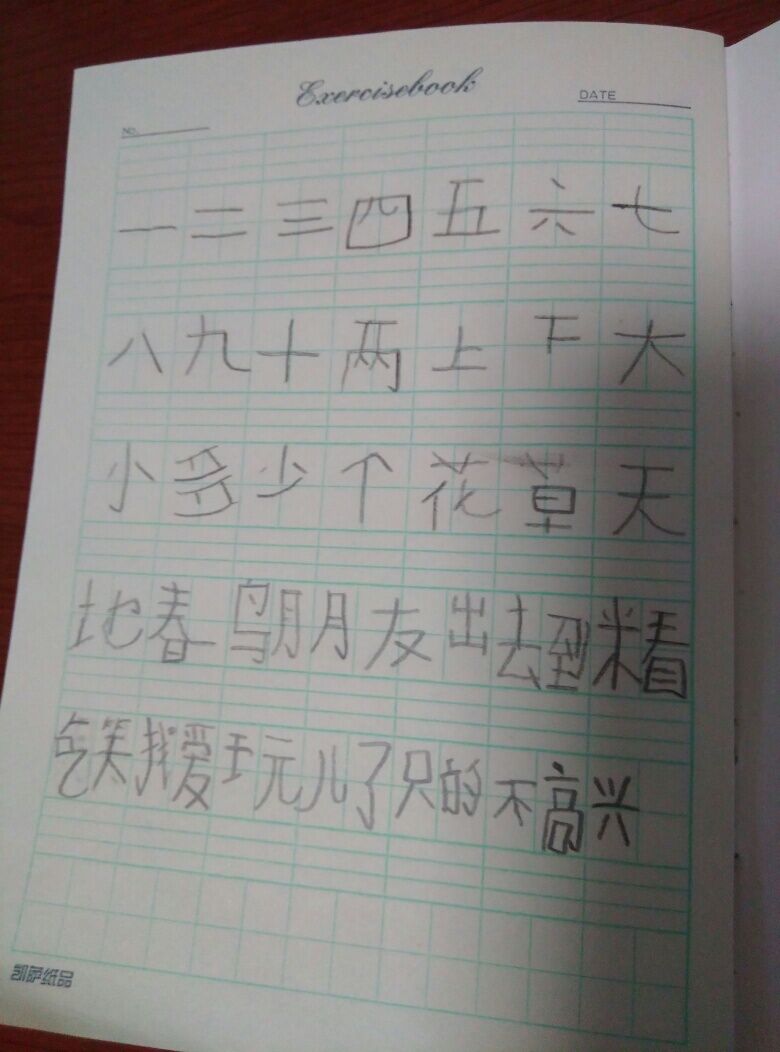 Exercisebook
DATE
No.
一二三四五六七
八九十两上下大
小多少个花草天
地春鸟朋月友出去到米看
吃笑找爱玩儿了只的不高兴
凯萨纸品